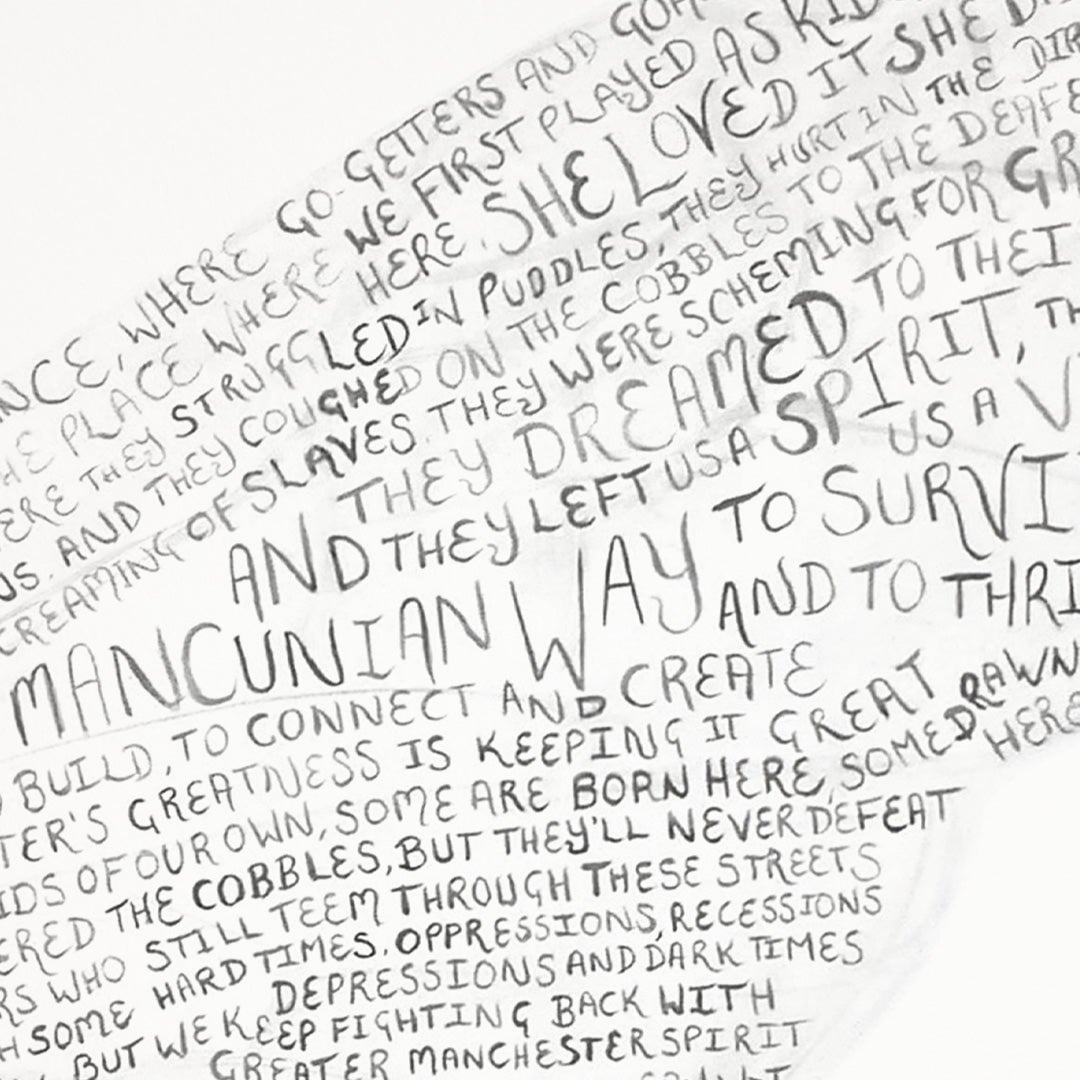 NCE, WHERE GO-GETTERS AND
HE PLACE WHERE WE FIRST PLAYED AS KID
HERE. SHE LOVED IT SHE
ERE THEY STRUGGLED IN PUDDLES, THEY HURT IN THE DIR
US. AND THEY COUGHED ON THE COBBLES TO THE DEAFE
CREAMING OF SLAVES. THEY WERE SCHEMING FOR GR
THEY DREAMED TO THEI
AND THEY LEFT US A SPIRIT, TH
US A V
MANCUNIAN WAY TO SURVI
AND TO THRI
BUILD, TO CONNECT AND CREATE
TER'S GREATNESS IS KEEPING IT GREAT
IDS OF OUR OWN, SOME ARE BORN HERE, SOME DRAWN
HERE
ERED THE COBBLES, BUT THEY'LL NEVER DEFEAT
RS WHO STILL TEEM THROUGH THESE STREETS
H SOME HARD TIMES. OPPRESSIONS, RECESSIONS
DEPRESSIONS AND DARK TIMES
BUT WE KEEP FIGHTING BACK WITH
GREATER MANCHESTER SPIRIT